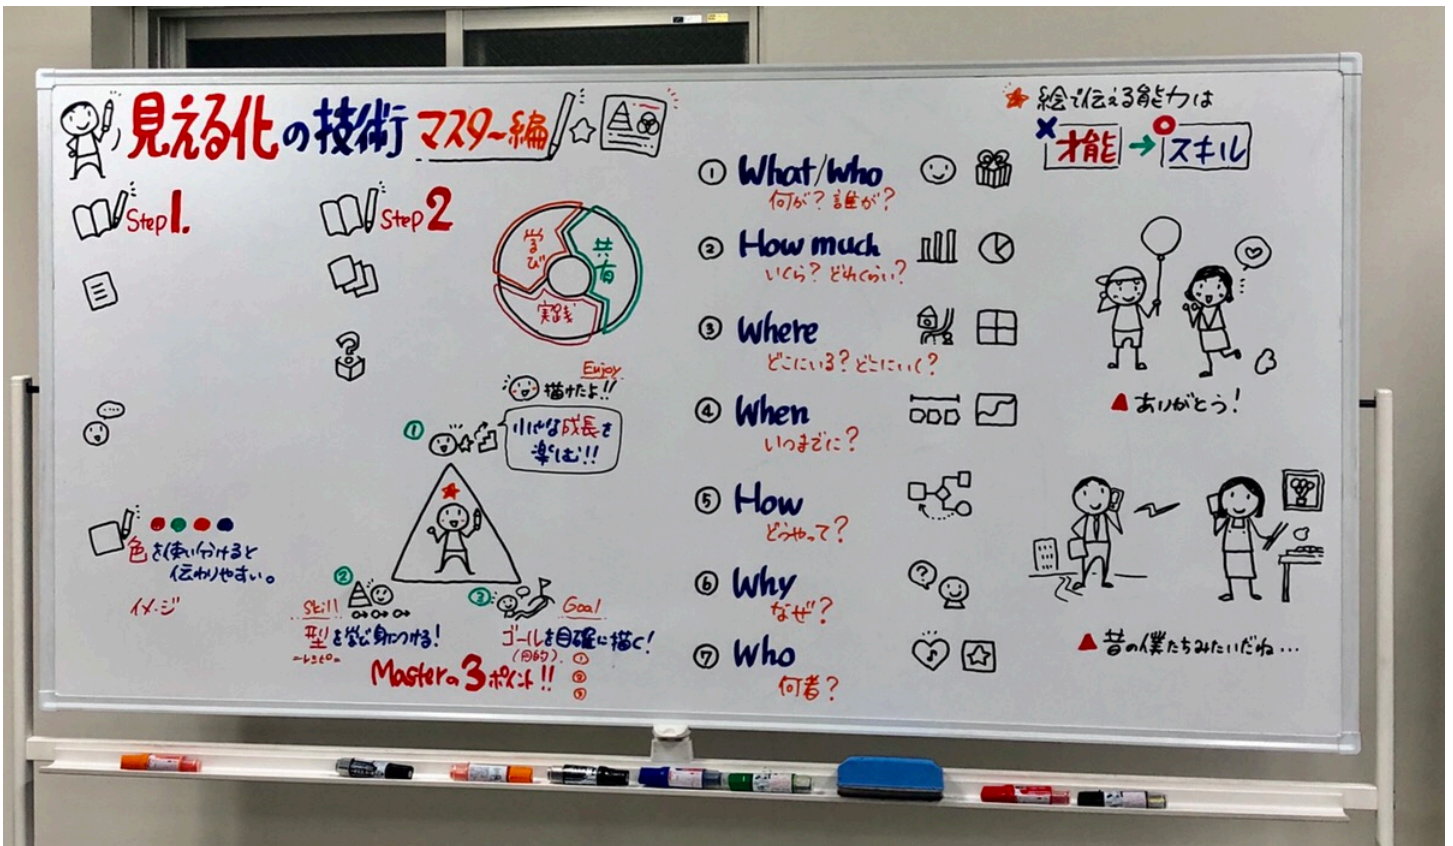 見える化の技術 マスター編
Step1.
色を使い分けると
伝わりやすい。
イメージ
Step2
学び
共有
実践
Enjoy
描けたよ!!
①
小さな成長を
楽しむ!!
②
Skill
型を学び身につける!
③
Goal
ゴールを明確に描く!
(目的)
①
②
③
Masterの3ポイント!!
① What/who
何が? 誰が?
② How much
いくら? どれくらい?
③ Where
どこにいる? どこにいく?
④ When
いつまでに?
⑤ How
どうやって?
⑥ Why
なぜ?
⑦ Who
何者?
絵で伝える能力は
才能→スキル
ありがとう!
昔の僕たちみたいだね…